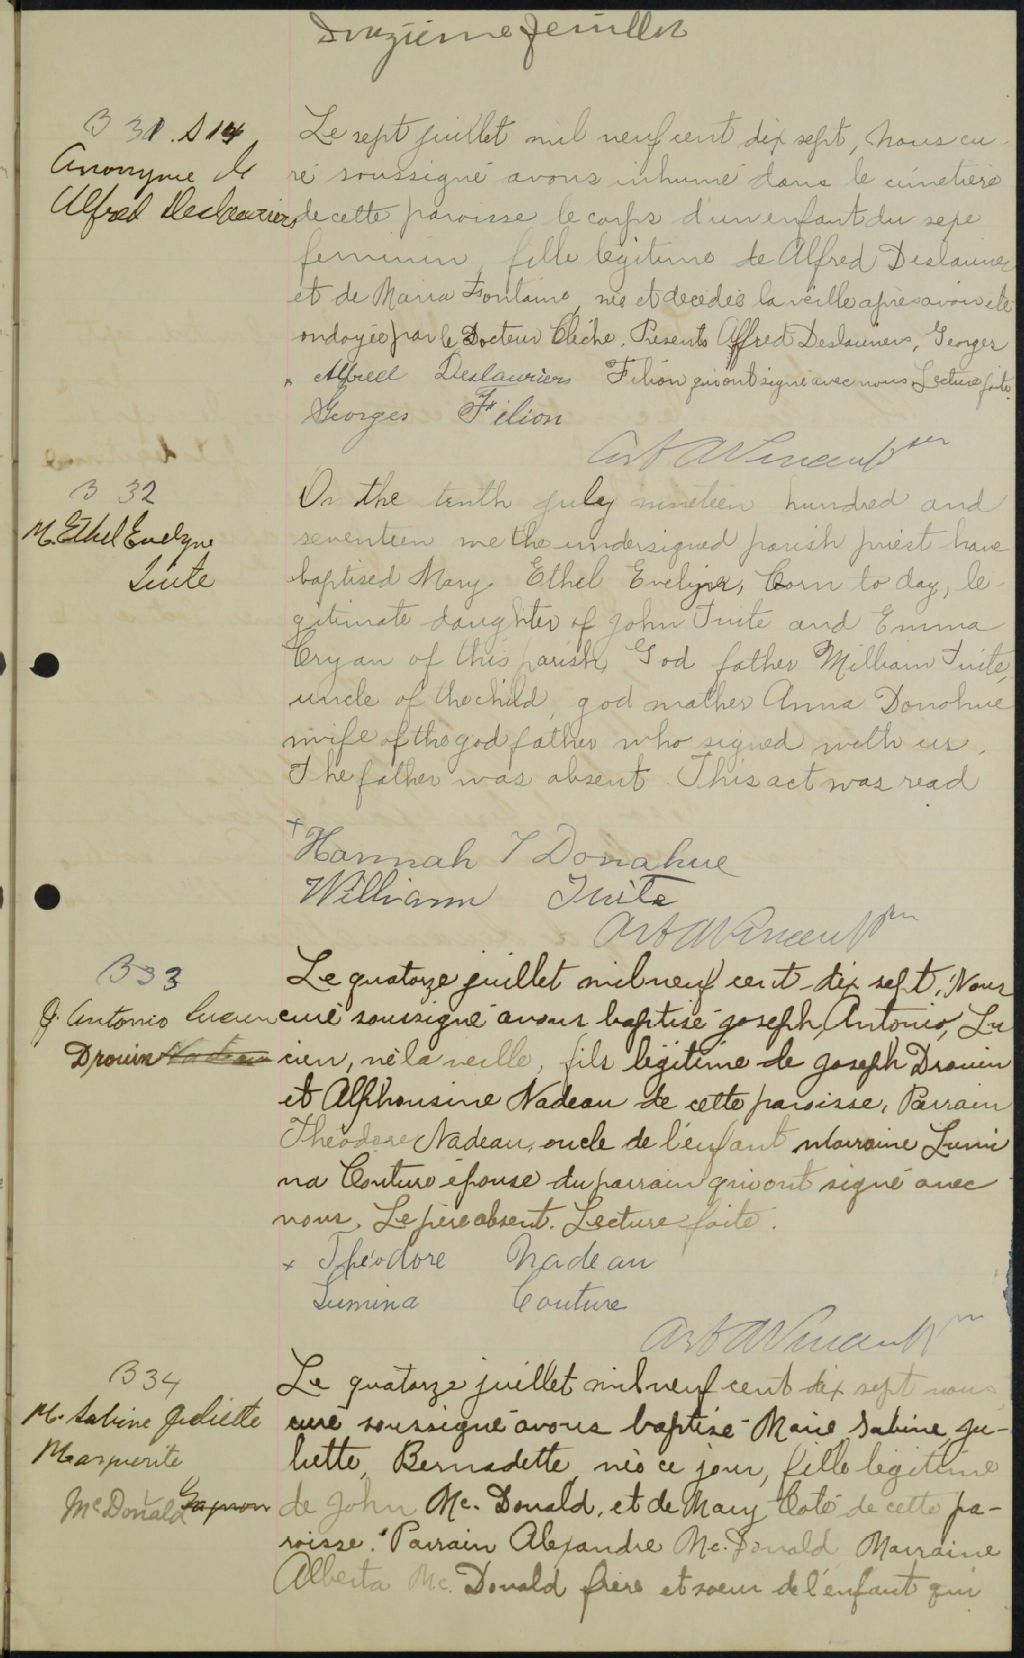 Douzième feuillet
B 31. S 14
Anonyme de
Alfred Deslauriers
Le sept juillet mil neuf cent dix sept, Nous cu-
ré soussigné avons inhumé dans le cimetière
de cette paroisse le corps d'un enfant du sexe
feminin, fille légitime de Alfred Deslauriers
et de Maria Fontaine, née et décédée la veille après avoir été
ondoyée par le Docteur Cléche. Présents Alfred Deslauriers, Georges
Filion qui ont signé avec nous Lecture faite.
x Alfred Deslauriers
Georges Filion
Art A Vincent ptre
B 32
M. Ethel Evelyne
Tuite
On the tenth july nineteen hundred and
seventeen we the undersigned parish priest have
baptised Mary Ethel Evelyne, born to day, le-
gitimate daughter of John Tuite and Emma
Cryan of this parish, God father William Tuite,
uncle of the child, god mother Anna Donohue
wife of the god father who signed with us.
The father was absent. This act was read
+ Hannah T Donahue
William Tuite
Art A Vincent ptre
B 33
J. Antonio Lucien
Drouin Nadeau
Le quatorze juillet mil neuf cent dix sept, Nous
curé soussigné avons baptisé Joseph, Antonio, Lu
cien, né la veille, fils légitime de Joseph Drouin
et Alphonsine Nadeau de cette paroisse, Parrain
Théodore Nadeau, oncle de l'enfant marraine Lumi
na Couture épouse du parrain qui ont signé avec
nous. Le père absent. Lecture faite.
x Théodore Nadeau
Lumina Couture
Art A Vincent ptre
B 34
M. Sabine Juliette
Marguerite
McDonald Gagnon
Le quatorze juillet mil neuf cent dix sept nous
curé soussigné avons baptisé Marie, Sabine, Ju-
liette, Bernadette, née ce jour, fille légitime
de John Mc. Donald, et de Mary Coté de cette pa-
roisse. Parrain Alexandre Mc. Donald Marraine
Alberta Mc. Donald frère et soeur de l'enfant qui